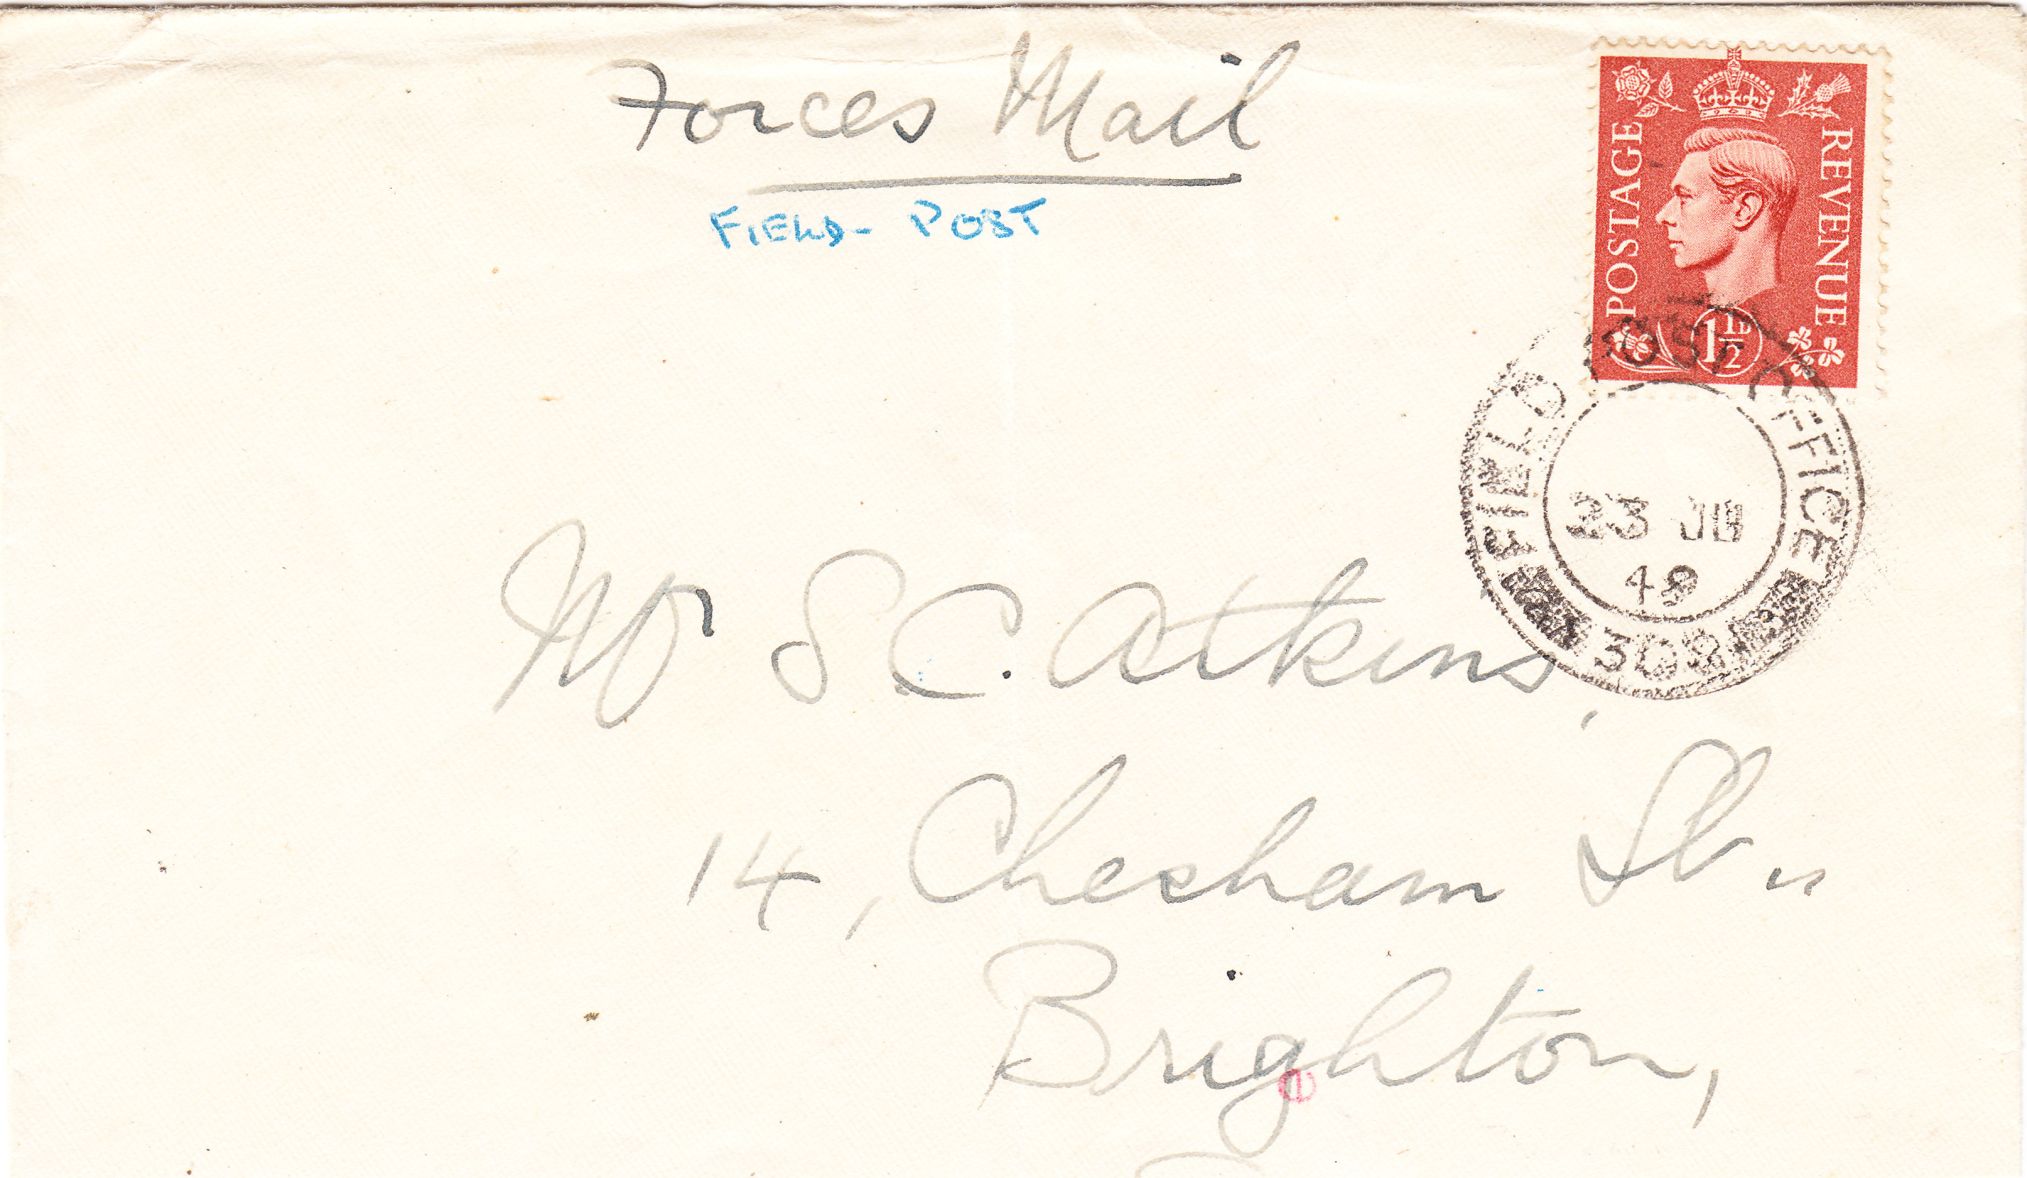 Forces Mail
FIELD - POST
POSTAGE
REVENUE
1½D
FIELD POST OFFICE
23 JU
49
308
Mr S.C. Atkins,
14, Chesham St.,
Brighton,